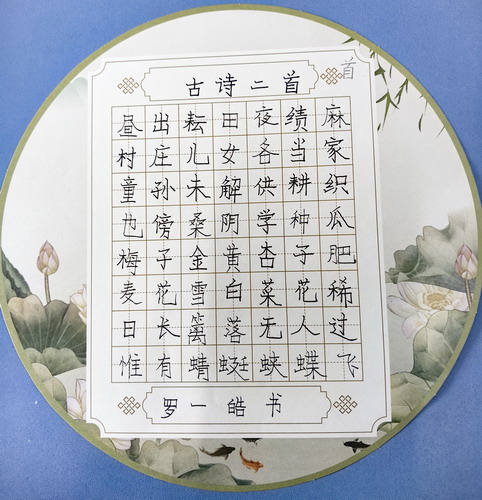 古诗二首
首
昼出耘田夜绩麻
村庄儿女各当家
童孙未解供耕织
也傍桑阴学种瓜
梅子金黄杏子肥
麦花雪白菜花稀
日长篱落无人过
惟有蜻蜓蛱蝶飞
罗一皓书